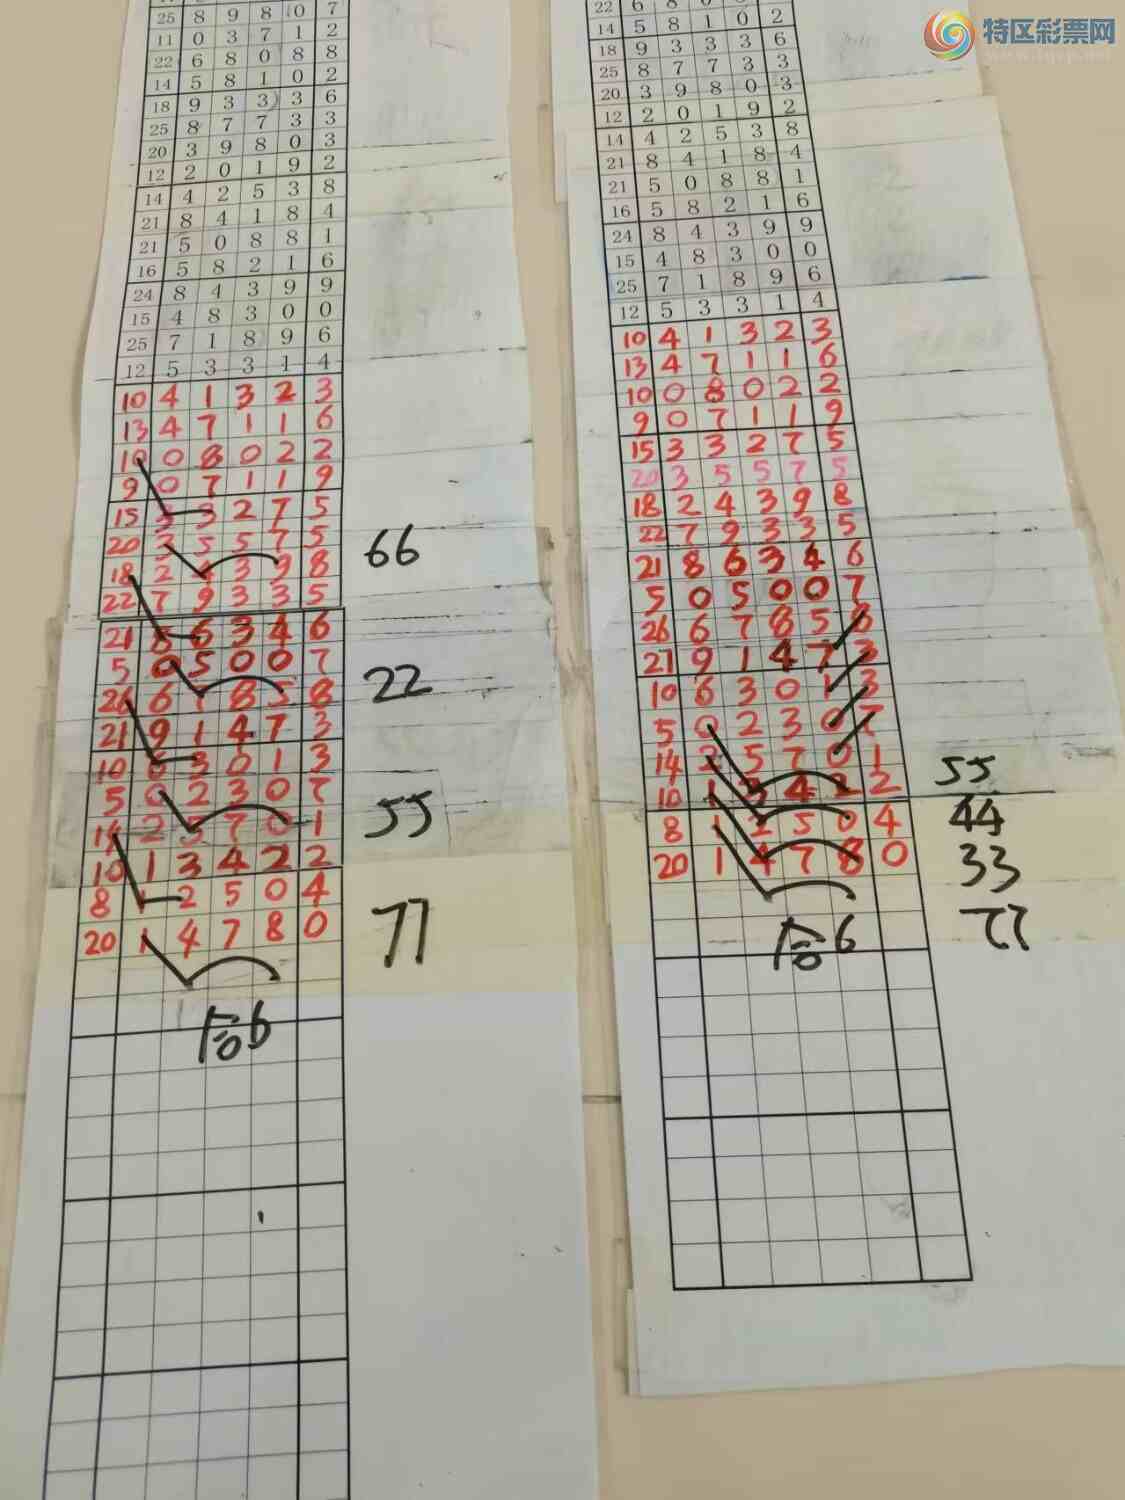 特区彩票网
25 8 9 8 0 7
11 0 3 7 1 2
22 6 8 0 8 8
14 5 8 1 0 2
18 9 3 3 3 6
25 8 7 7 3 3
20 3 9 8 0 3
12 2 0 1 9 2
14 4 2 5 3 8
21 8 4 1 8 4
21 5 0 8 8 1
16 5 8 2 1 6
24 8 4 3 9 9
15 4 8 3 0 0
25 7 1 8 9 6
12 5 3 3 1 4
10 4 1 3 2 3
13 4 7 1 1 6
10 0 8 0 2 2
9 0 7 1 1 9
15 3 3 2 7 5
20 3 5 5 7 5
66
18 2 4 3 9 8
22 7 9 3 3 5
21 8 6 3 4 6
5 0 5 0 0 7
22
26 6 7 8 5 8
21 9 1 4 7 3
10 6 3 0 1 3
5 0 2 3 0 7
55
14 2 5 7 0 1
10 1 3 4 2 2
8 1 2 5 0 4
20 1 4 7 8 0
77
6
22 6 8 0 8
14 5 8 1 0 2
18 9 3 3 3 6
25 8 7 7 3 3
20 3 9 8 0 3
12 2 0 1 9 2
14 4 2 5 3 8
21 8 4 1 8 4
21 5 0 8 8 1
16 5 8 2 1 6
24 8 4 3 9 9
15 4 8 3 0 0
25 7 1 8 9 6
12 5 3 3 1 4
10 4 1 3 2 3
13 4 7 1 1 6
10 0 8 0 2 2
9 0 7 1 1 9
15 3 3 2 7 5
20 3 5 5 7 5
18 2 4 3 9 8
22 7 9 3 3 5
21 8 6 3 4 6
5 0 5 0 0 7
26 6 7 8 5 8
21 9 1 4 7 3
10 6 3 0 1 3
5 0 2 3 0 7
14 2 5 7 0 1
55
10 1 3 4 2 2
44
8 1 2 5 0 4
33
20 1 4 7 8 0
77
6